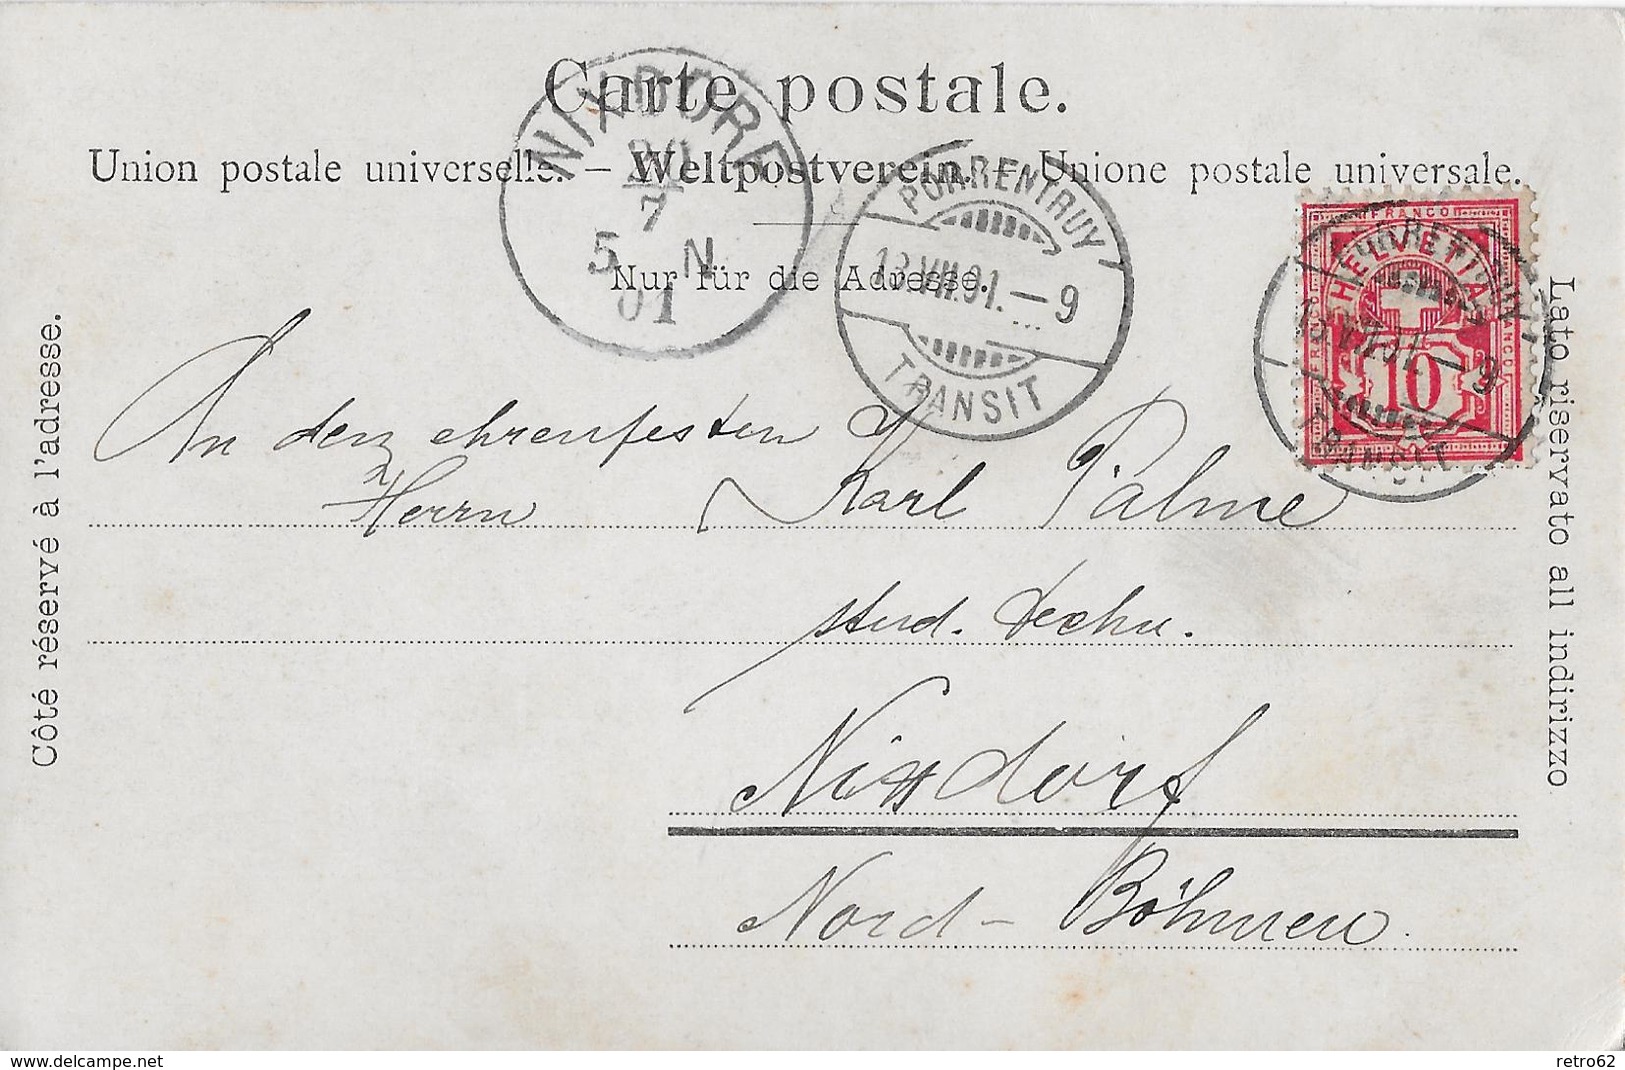 Carte postale.
Union postale universelle. – Weltpostverein. – Unione postale universale.
Nur für die Adresse.
Côté réservé à l'adresse.
Lato riservato all indirizzo
NIXDORF
20
7
5 N
01
PORRENTRUY
13.VII.01.–9
TRANSIT
FRANCO
HELVETIA
10
FRANCO
PORRENTRUY
13.VII.01.–9
TRANSIT
An den ehrenfesten
Herrn Karl Palme
stud. techn.
Nixdorf
Nord-Böhmen.
delcampe.net
retro62